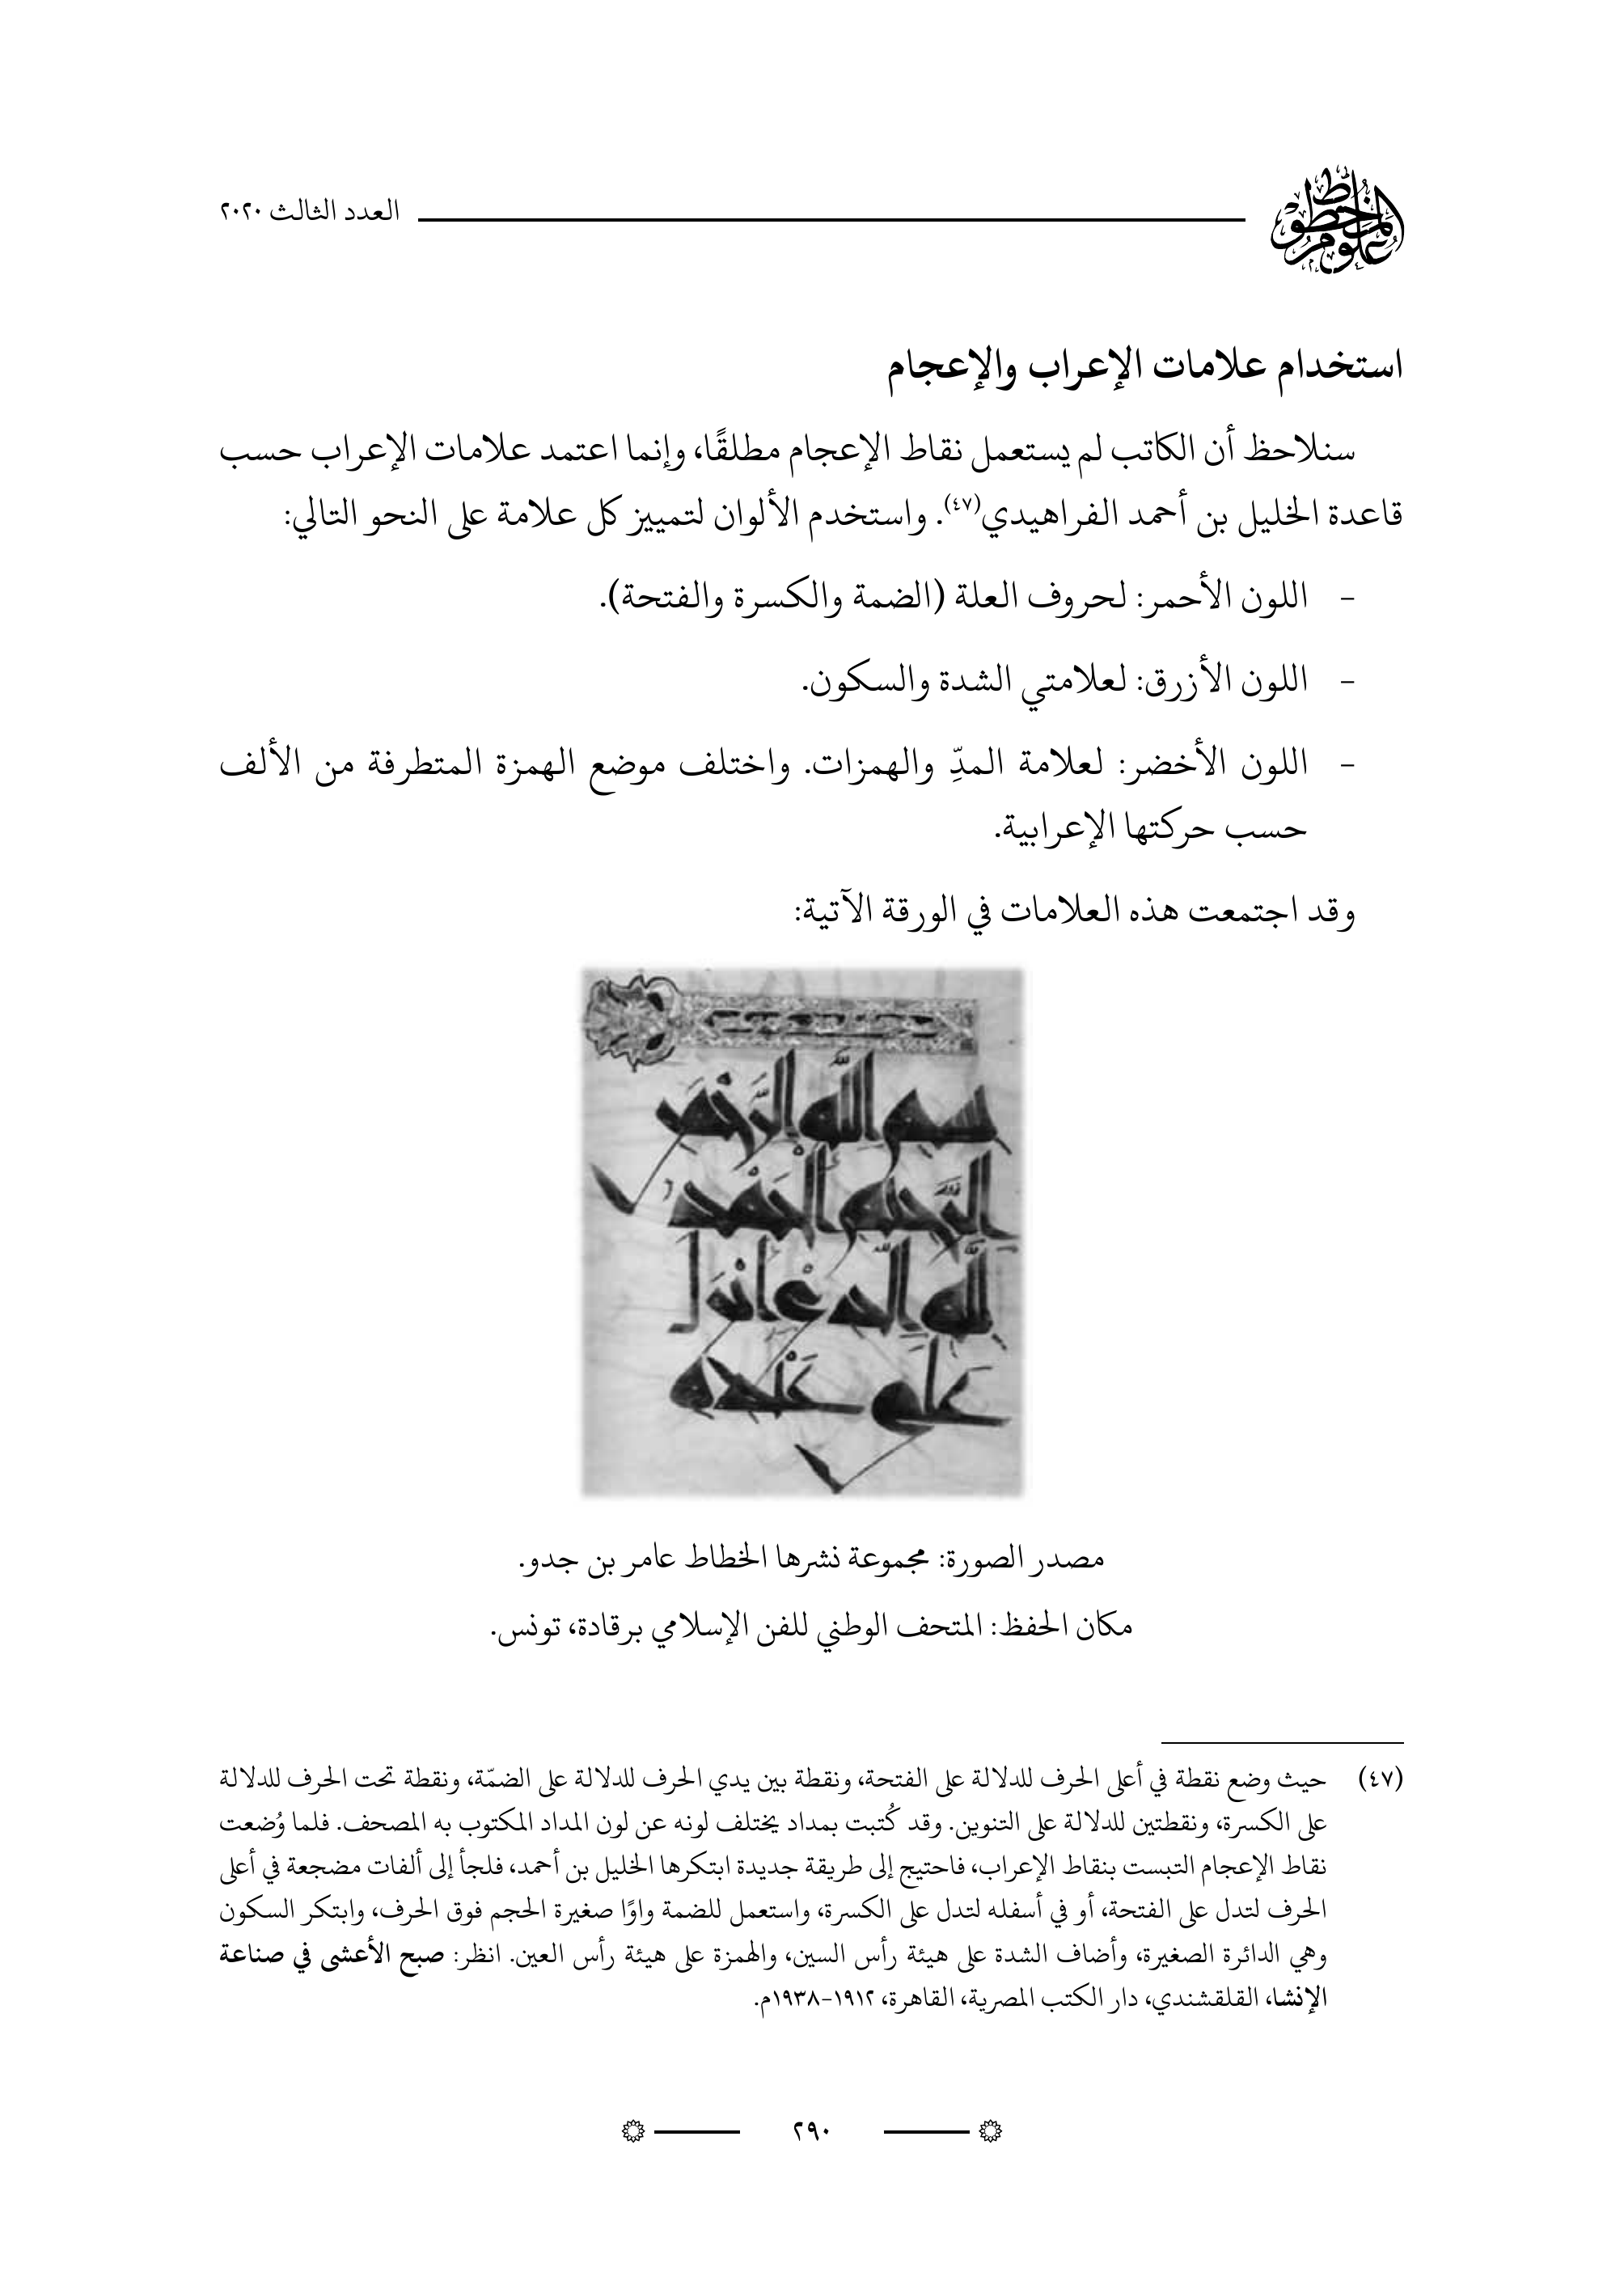 علوم المخطوط
العدد الثالث ٢٠٢٠
استخدام علامات الإعراب والإعجام
سنلاحظ أن الكاتب لم يستعمل نقاط الإعجام مطلقًا، وإنما اعتمد علامات الإعراب حسب
قاعدة الخليل بن أحمد الفراهيدي(٤٧). واستخدم الألوان لتمييز كل علامة على النحو التالي:
– اللون الأحمر: لحروف العلة (الضمة والكسرة والفتحة).
– اللون الأزرق: لعلامتي الشدة والسكون.
– اللون الأخضر: لعلامة المدِّ والهمزات. واختلف موضع الهمزة المتطرفة من الألف
حسب حركتها الإعرابية.
وقد اجتمعت هذه العلامات في الورقة الآتية:
بسم اللَّه الرَّحْمَن
الرَّحيم الحَمْد
للَّه الَّدى أَنْزَل
عَلَى عَبْده
مصدر الصورة: مجموعة نشرها الخطاط عامر بن جدو.
مكان الحفظ: المتحف الوطني للفن الإسلامي برقادة، تونس.
(٤٧) حيث وضع نقطة في أعلى الحرف للدلالة على الفتحة، ونقطة بين يدي الحرف للدلالة على الضمّة، ونقطة تحت الحرف للدلالة
على الكسرة، ونقطتين للدلالة على التنوين. وقد كُتبت بمداد يختلف لونه عن لون المداد المكتوب به المصحف. فلما وُضعت
نقاط الإعجام التبست بنقاط الإعراب، فاحتيج إلى طريقة جديدة ابتكرها الخليل بن أحمد، فلجأ إلى ألفات مضجعة في أعلى
الحرف لتدل على الفتحة، أو في أسفله لتدل على الكسرة، واستعمل للضمة واوًا صغيرة الحجم فوق الحرف، وابتكر السكون
وهي الدائرة الصغيرة، وأضاف الشدة على هيئة رأس السين، والهمزة على هيئة رأس العين. انظر: صبح الأعشى في صناعة
الإنشا، القلقشندي، دار الكتب المصرية، القاهرة، ١٩١٢-١٩٣٨م.
٢٩٠